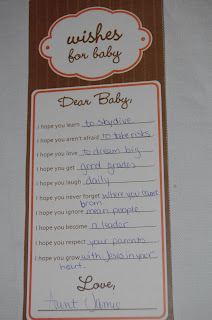 wishes
for baby
Dear Baby,
I hope you learn to skydive
I hope you aren't afraid to take risks
I hope you love to dream big
I hope you get good grades
I hope you laugh daily
I hope you never forget where you came
from
I hope you ignore mean people
I hope you become a leader
I hope you respect your parents
I hope you grow with Jesus in your
heart.
Love,
Aunt Jamie